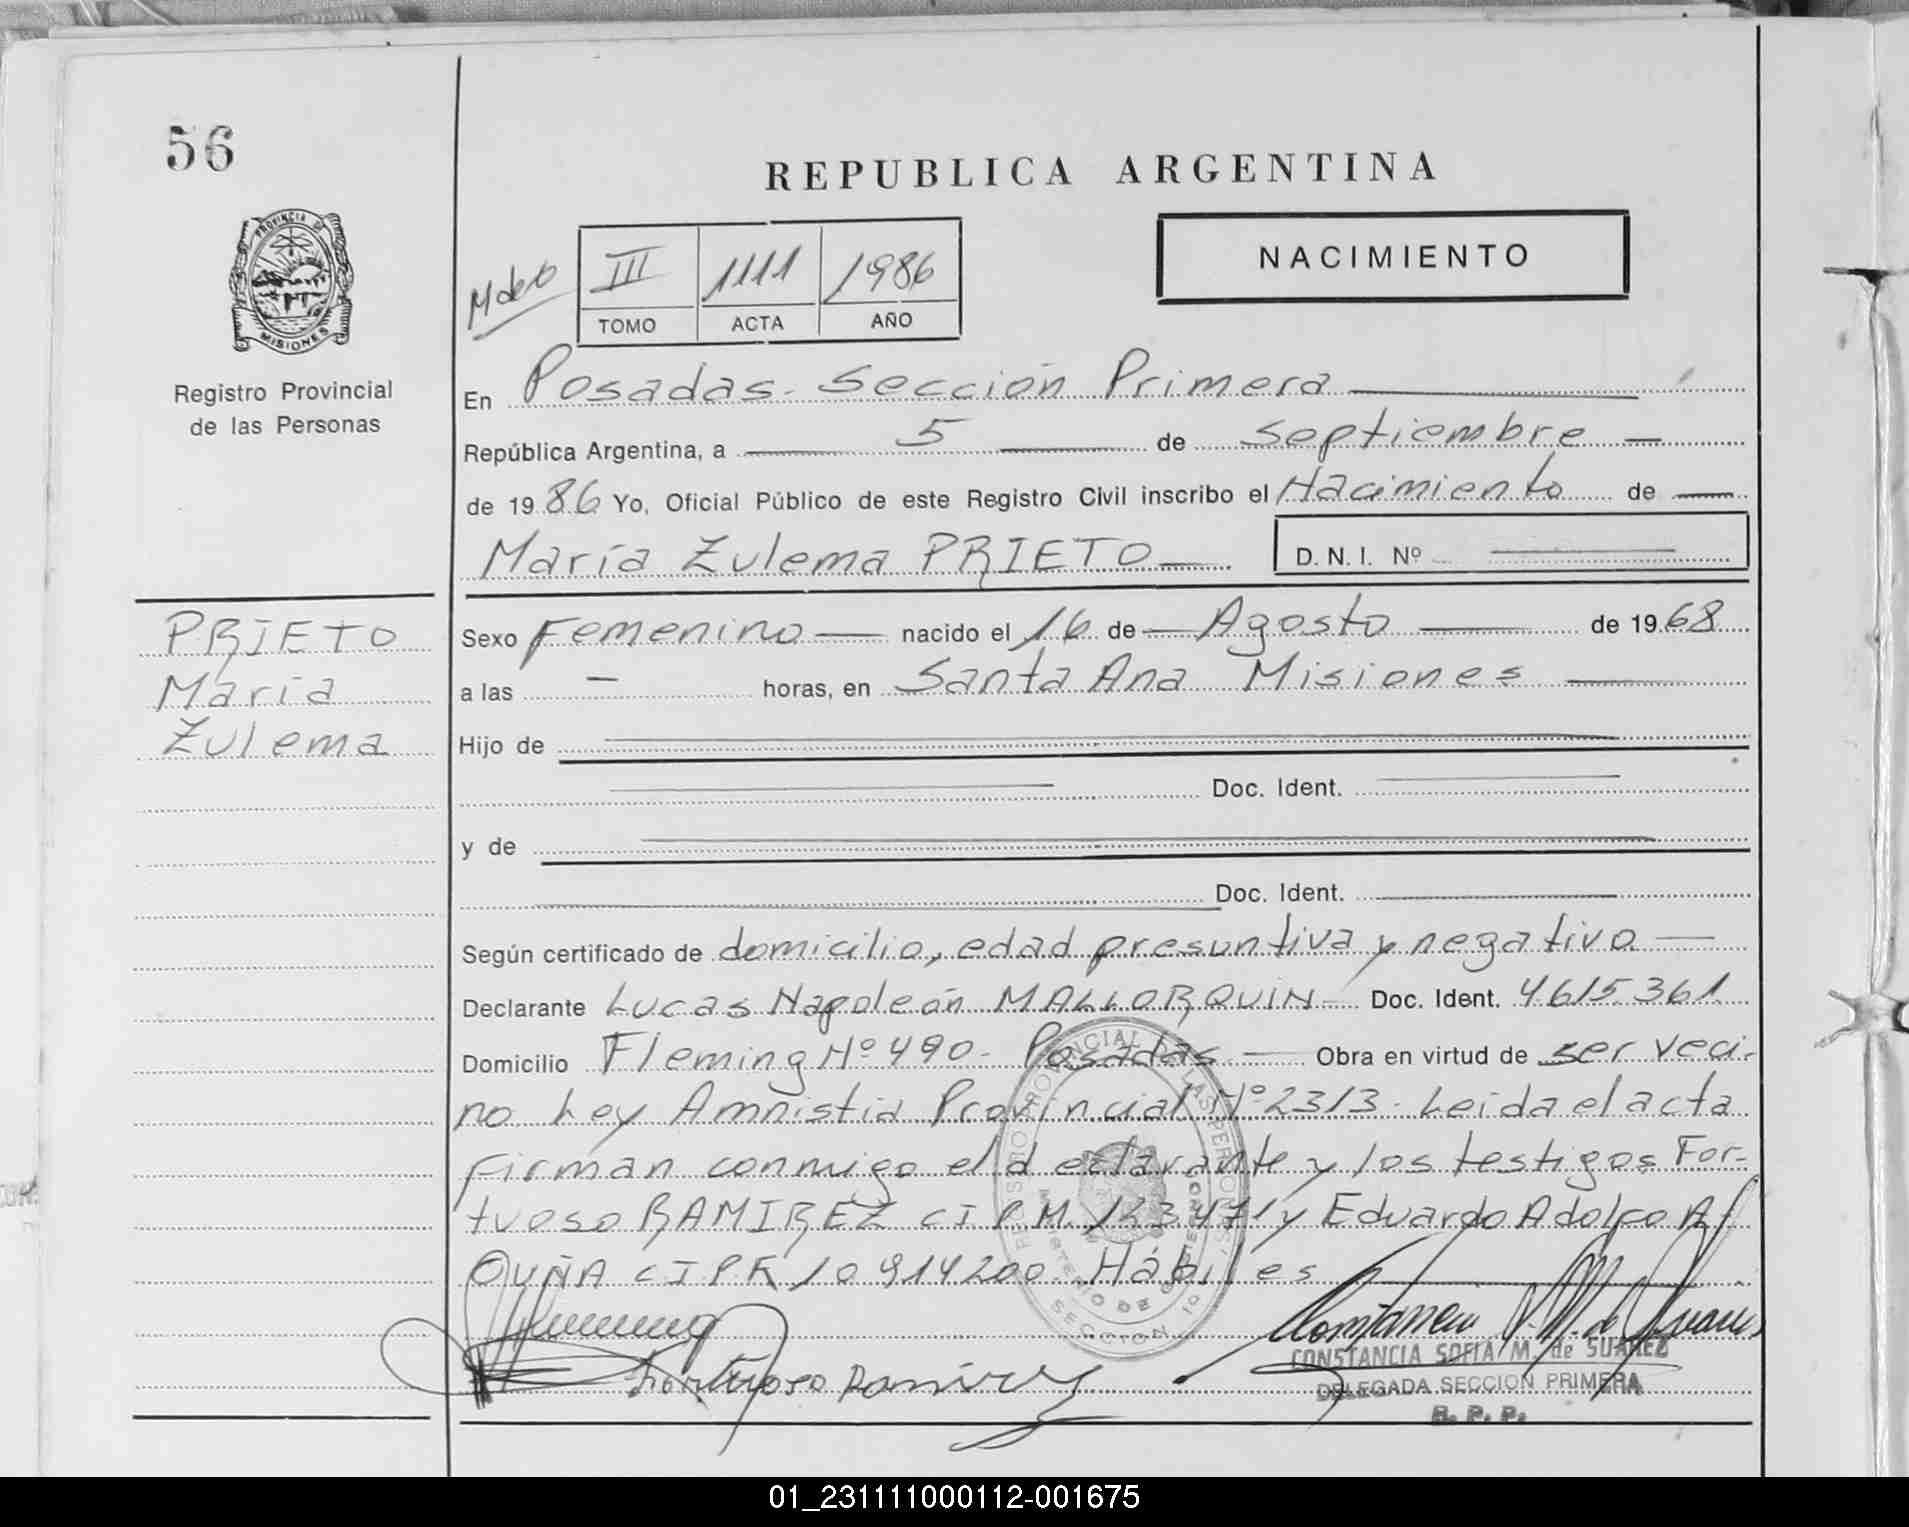 56
REPUBLICA ARGENTINA
NACIMIENTO
III 1111 1986
TOMO ACTA AÑO
PROVINCIA DE
MISIONES
Registro Provincial
de las Personas
En Posadas. Sección Primera
República Argentina, a 5 de Septiembre
de 1986 Yo, Oficial Público de este Registro Civil inscribo el Nacimiento de
María Zulema PRIETO D.N.I. Nº
PRIETO
María
Zulema
Sexo Femenino nacido el 16 de Agosto de 1968
a las — horas, en Santa Ana Misiones
Hijo de
Doc. Ident.
y de
Doc. Ident.
Según certificado de domicilio, edad presuntiva y negativo
Declarante Lucas Napoleón MALLORQUIN Doc. Ident. 4615361
Domicilio Fleming Nº 490. Posadas Obra en virtud de ser veci-
no Ley Amnistia Provincial Nº 2313. Leida el acta
firman conmigo el declarante y los testigos For-
tuoso RAMIREZ CI P.M. y Eduardo Adolfo
CI PF 10914200. Hábiles
REGISTRO PROVINCIAL DE LAS PERSONAS
MINISTERIO DE GOBIERNO
SECCION 1º
Fortuoso Ramirez
CONSTANCIA SOFIA M. de SUAREZ
DELEGADA SECCION PRIMERA
R. P. P.
01_231111000112-001675